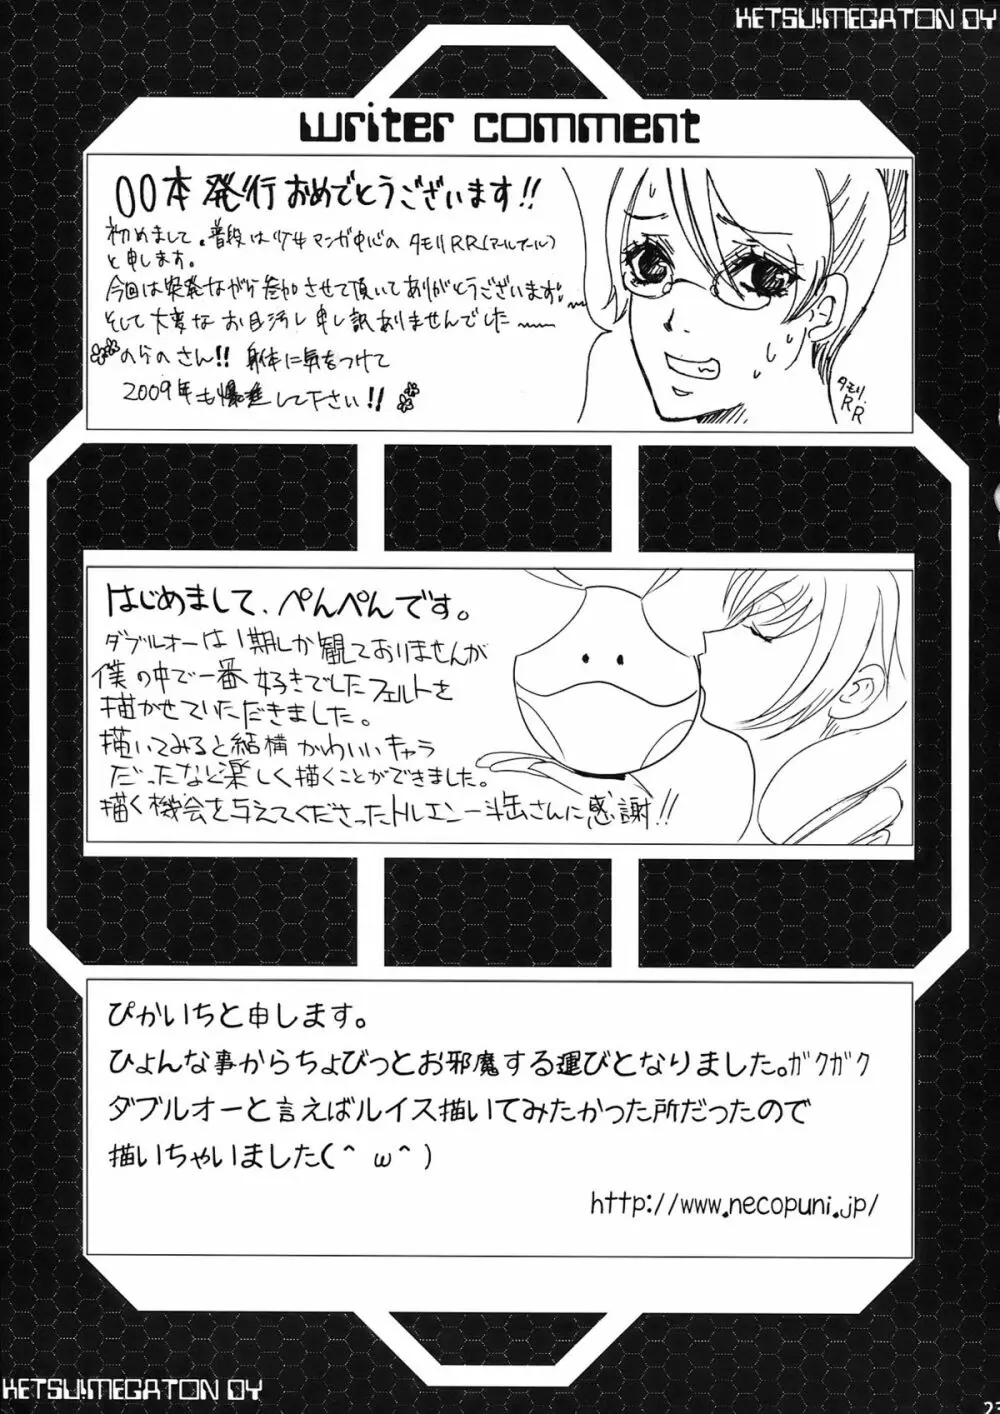 KETSU!MEGATON OY
writer comment
00本 発行 おめでとうございます!!
初めまして。普段は少年マンガ中心の タモリRR(アールアール)
と申します。
今回は突発ながら参加させて頂いてありがとうございます。
そして大変な お目汚し 申し訳ありませんでした〜
のらのさん!! 身体に気をつけて
2009年も爆進して下さい!!
タモリ.
RR
はじめまして、ぺんぺんです。
ダブルオーは1期しか観ておりませんが
僕の中で一番好きでしたフェルトを
描かせていただきました。
描いてみると結構かわいいキャラ
だったなど楽しく描くことができました。
描く機会を与えてくださったトルエン一斗缶さんに感謝!!
ぴかいちと申します。
ひょんな事からちょびっとお邪魔する運びとなりました。ガクガク
ダブルオーと言えばルイス描いてみたかった所だったので
描いちゃいました(＾ω＾)
http://www.necopuni.jp/
KETSU!MEGATON OY
23